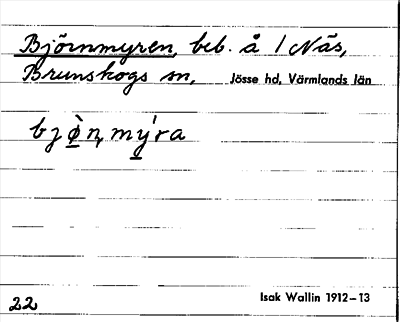 Björnmyren, beb. å 1 Näs,
Brunskogs sn,
Jösse hd, Värmlands län
bjø̀n,mý̱ra
22
Isak Wallin 1912–13